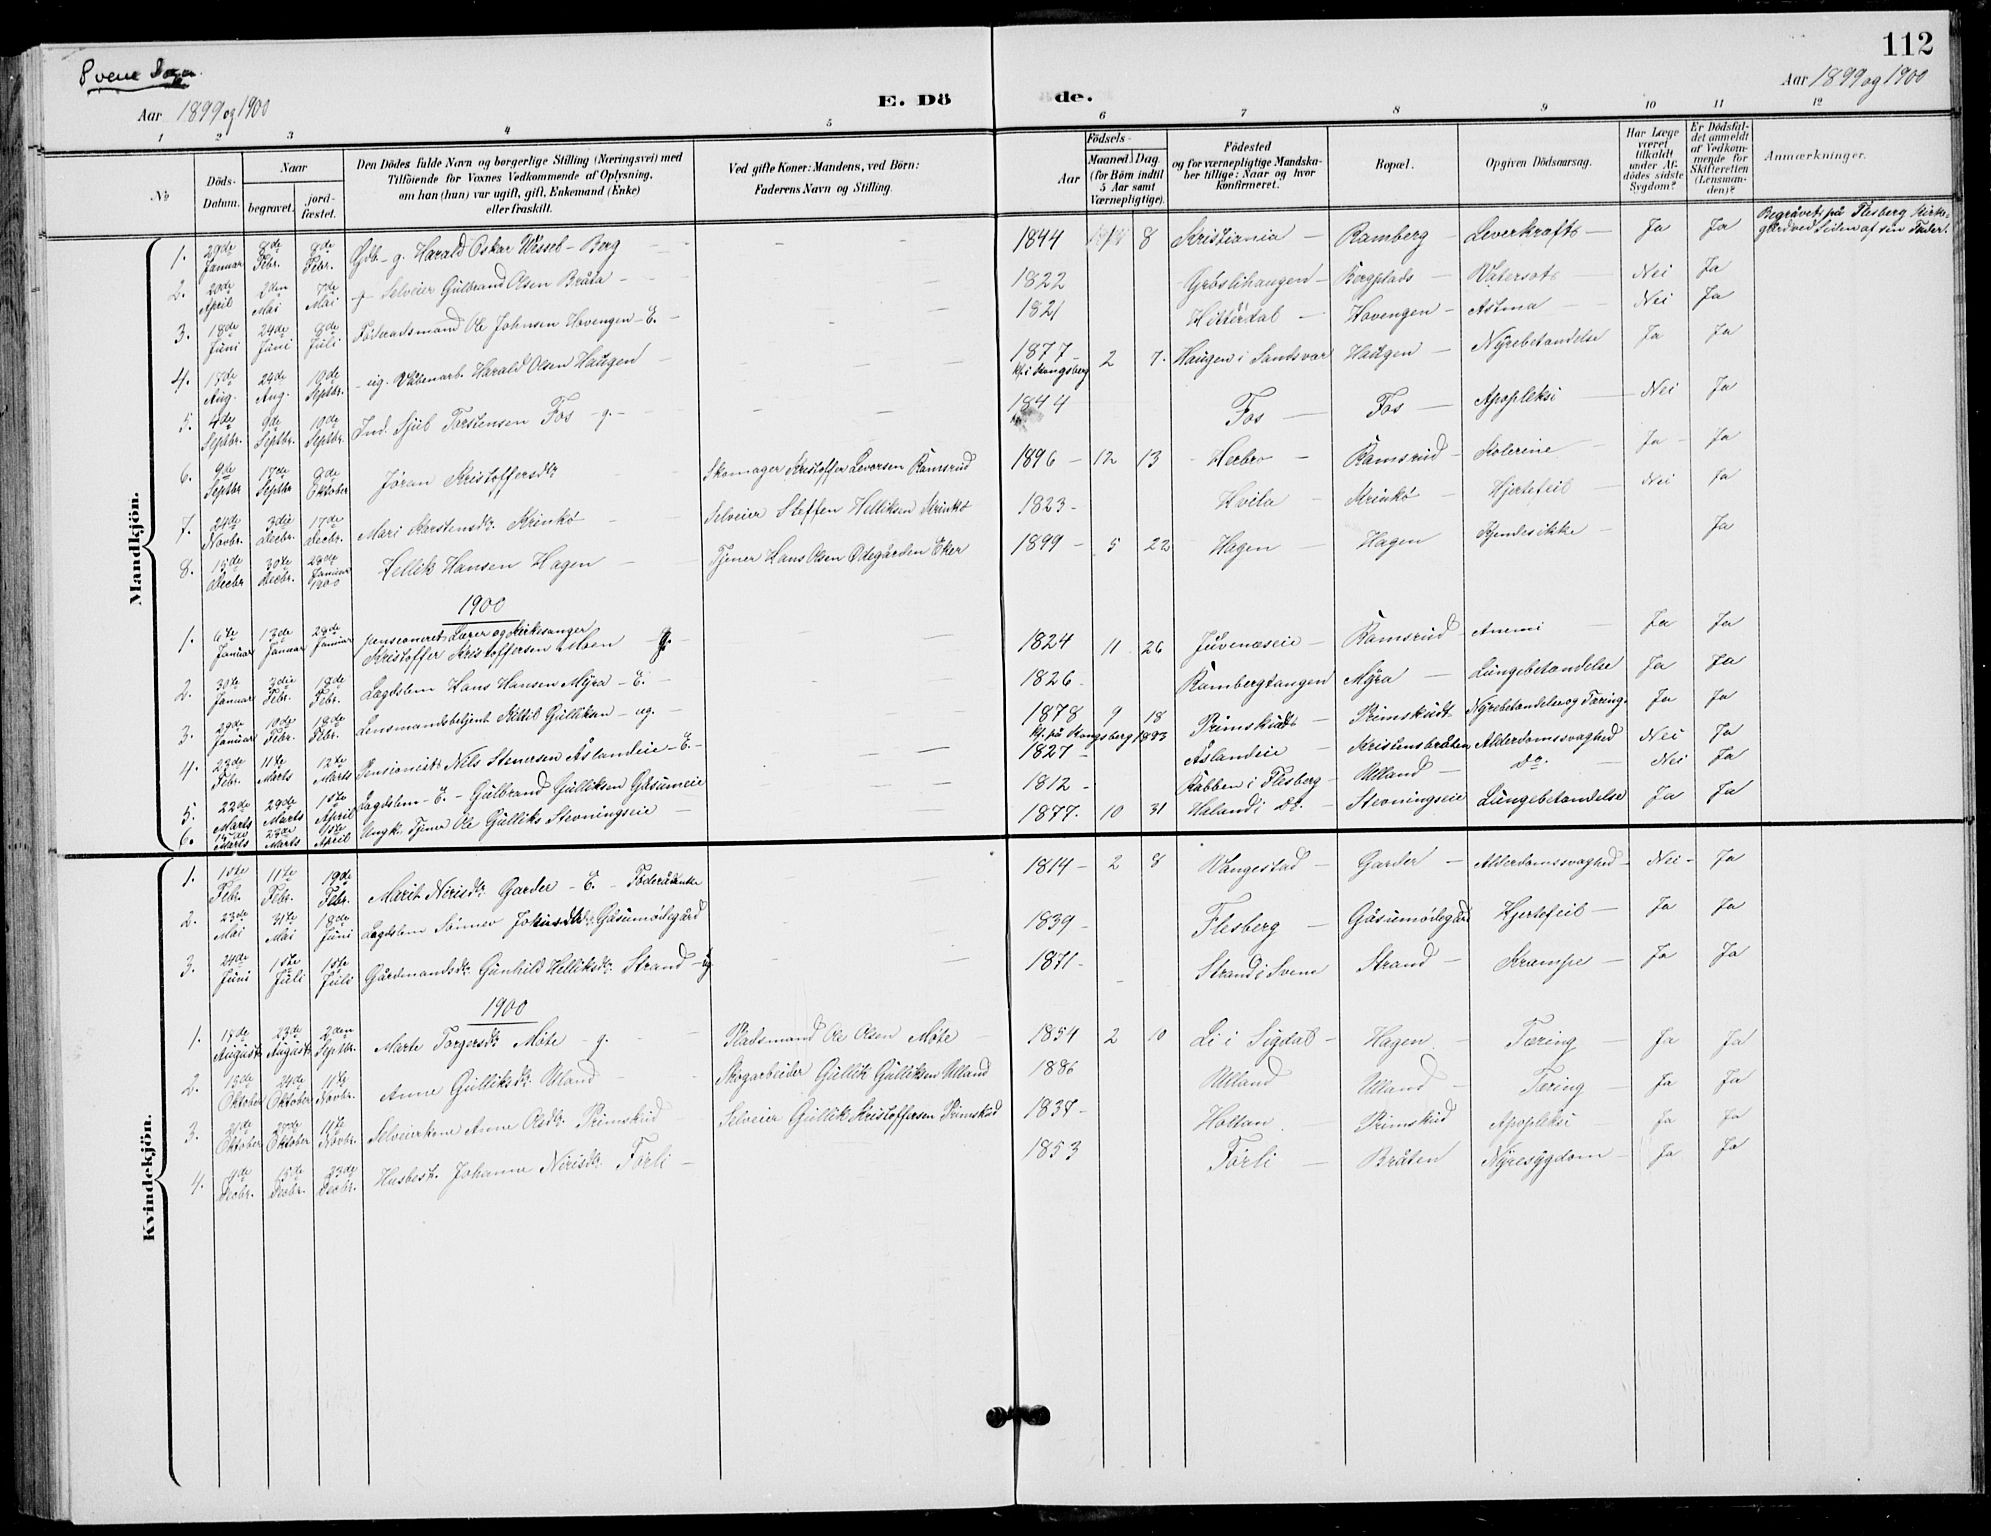 112
Svene Sogn
Aar 1899 og 1900
E. Dö
de.
Aar 1899 og 1900
1 2 3 4 5 6 7 8 9 10 11 12
№
Döds-Datum.
Naar
begravet.
jord-fæstet.
Den Dödes fulde Navn og borgerlige Stilling (Næringsvei) med
Tilföiende for Voxnes Vedkommende af Oplysning,
om han (hun) var ugift, gift, Enkemand (Enke)
eller fraskilt.
Ved gifte Koner: Mandens, ved Börn:
Faderens Navn og Stilling.
Födsels-
Aar
Maaned. Dag.
(for Börn indtil
5 Aar samt
Værnepligtige).
Födested
og for værnepligtige Mandska-
ber tillige: Naar og hvor
konfirmeret.
Bopæl.
Opgiven Dödsaarsag.
Har Læge
været
tilkaldt
under Af-
dödes sidste
Sygdom?
Er Dödsfal-
det anmeldt
af Vedkom-
mende for
Skifteretten
(Lensman-
den)?
Anmærkninger.
Mandkjön.
1. 29de Januar 8de Febr. 8de Febr. Gdb. g. Harald Oskar Wessel-Berg – – – 1844 8 Kristiania – Ramberg – Leverkræft – Ja Ja Begravet på Flesberg Kirke-
gård ved Siden af sin Fader.
2. 20de April 2den Mai 7de Mai Selveier Gulbrand Olsen Bråta – – – 1822 Gröslihaugen – Bergplads – Vatersot – Nei Ja
3. 18de Juni 24de Juni 8de Juli Föderaadsmand Ole Johnsen Hovengen – E. – – – 1821 Hitterdal – Hovengen – Astma – Nei Ja
4. 17de Aug. 24de Aug. 19de Septbr. ug. Våbenarb. Harald Olsen Haugen – – – 1877 – 2 7. Haugen i Sandsvær Haugen – Nyrebetændelse Ja Ja
kf. i Kongsberg
5. 4de Septbr. 9de Septbr. 19de Septbr. Ind. Sjul Torstensen Fos – g. – – – 1844 Fos – Fos – Apopleksi – Nei Ja
6. 9de Septbr. 17de Septbr. 8de Oktober Jöran Kristoffersdtr. Skomager Kristoffer Levorsen Ramsrud 1896 – 12 13 Herbro – Ramsrud – Kolerine – Ja Ja
7. 24de Novbr. 3die Decbr. 17de Decbr. Mari Karstensdtr. Krinkö – Selveier Steffen Helliksen Krinkö 1823 – Hvila – Krinkö – Hjertefeil – Nei Ja
8. 15de Decbr. 30te Decbr. 28de Januar 1900 Hellik Hansen Hagen – Tjener Hans Olsen Ödegården Eker 1899 – 5 22 Hagen – Hagen Kjendes ikke – Ja
1900
1. 6te Januar 13de Januar 28de Januar pensioneret Lærer og Kirkesanger
Kristoffer Kristoffersen Moen – g. – – 1824 11 26 Juvenæseie – Ramsrud – Anemi – Ja Ja
2. 30te Januar 3die Febr. 18de Febr. Lægdslem Hans Hansen Myra – E. – – – 1826 – Rambergtangen Myra – Lungebetændelse Ja Ja
3. 29de Januar 10de Febr. 18de Febr. Lensmandsbetjent Kittil Gulliksen – ug. – – 1878 9 18 Primskudt – Primskudt Nyrebetændelse og Tæring. Ja Ja
kf. på Kongsberg 1893
4. 23de Febr. 11te Marts 12te Marts Pensionist Nils Stenersen Åslandeie – E. – – – 1827 – Åslandeie – Kristensbråten Alderdomssvaghed Nei Ja
5. 22de Marts 29de Marts 1ste April Lægdslem – E. – Gulbrand Gulliksen Gåsumeie 1812 – Rabben i Flesberg – Ulland – do. – Nei Ja
6. Marts 28de Marts 1ste April Ungk. Tjener Ole Gulliks Stevningseie – – 1877. 10 31 Haland i do. – Stevningseie Lungebetændelse Ja Ja
Kvindekjön.
1. 1ste Febr. 11te Febr. 19de Febr. Marit Nirisdtr. Garder – E. – Föderådsenke – – 1814 – 2 8 Vangestad – Garder – Alderdomssvaghed – Nei – Ja
2. 23de Mai 31te Mai 18de Juni Lægdslem Sönnev Johnsdtr. Gåsumödegård – – 1839 – Flesberg – Gåsumödegård Hjertefeil – Ja Ja
3. 24de Juni 1ste Juli 1ste Juli Gårdmandsdtr. Gunhild Helliksdtr. Strand – ug – – 1871 – Strand i Svene Strand – Krampe – Ja Ja
1900
1. 15de August 23de August 2den Septbr. Marte Torgersdtr. Möte – g. – Pladsmand Ole Olsen Möte 1854 2 10 Li i Sigdal – Hagen – Tæring – Ja Ja
2. 13de Oktober 24de Oktober 11te Novbr. Anne Gulliksdtr. Uland – Skogarbeider Gullik Gulliksen Ulland 1886 Ulland Ulland – Tæring – Ja Ja
3. 21de Oktober 29de Oktober 11te Novbr. Selveierkone Anne Olsdtr. Primskud Selveier Gullik Kristoffersen Primskud 1837 – Holtan – Primskud Apopleksi – Ja Ja
4. 4de Decbr. 15de Decbr. 23de Decbr. Husbest. Johanne Nirisdtr. Förli – 1853 Förli – Bråten Nyresygdom – Ja Ja